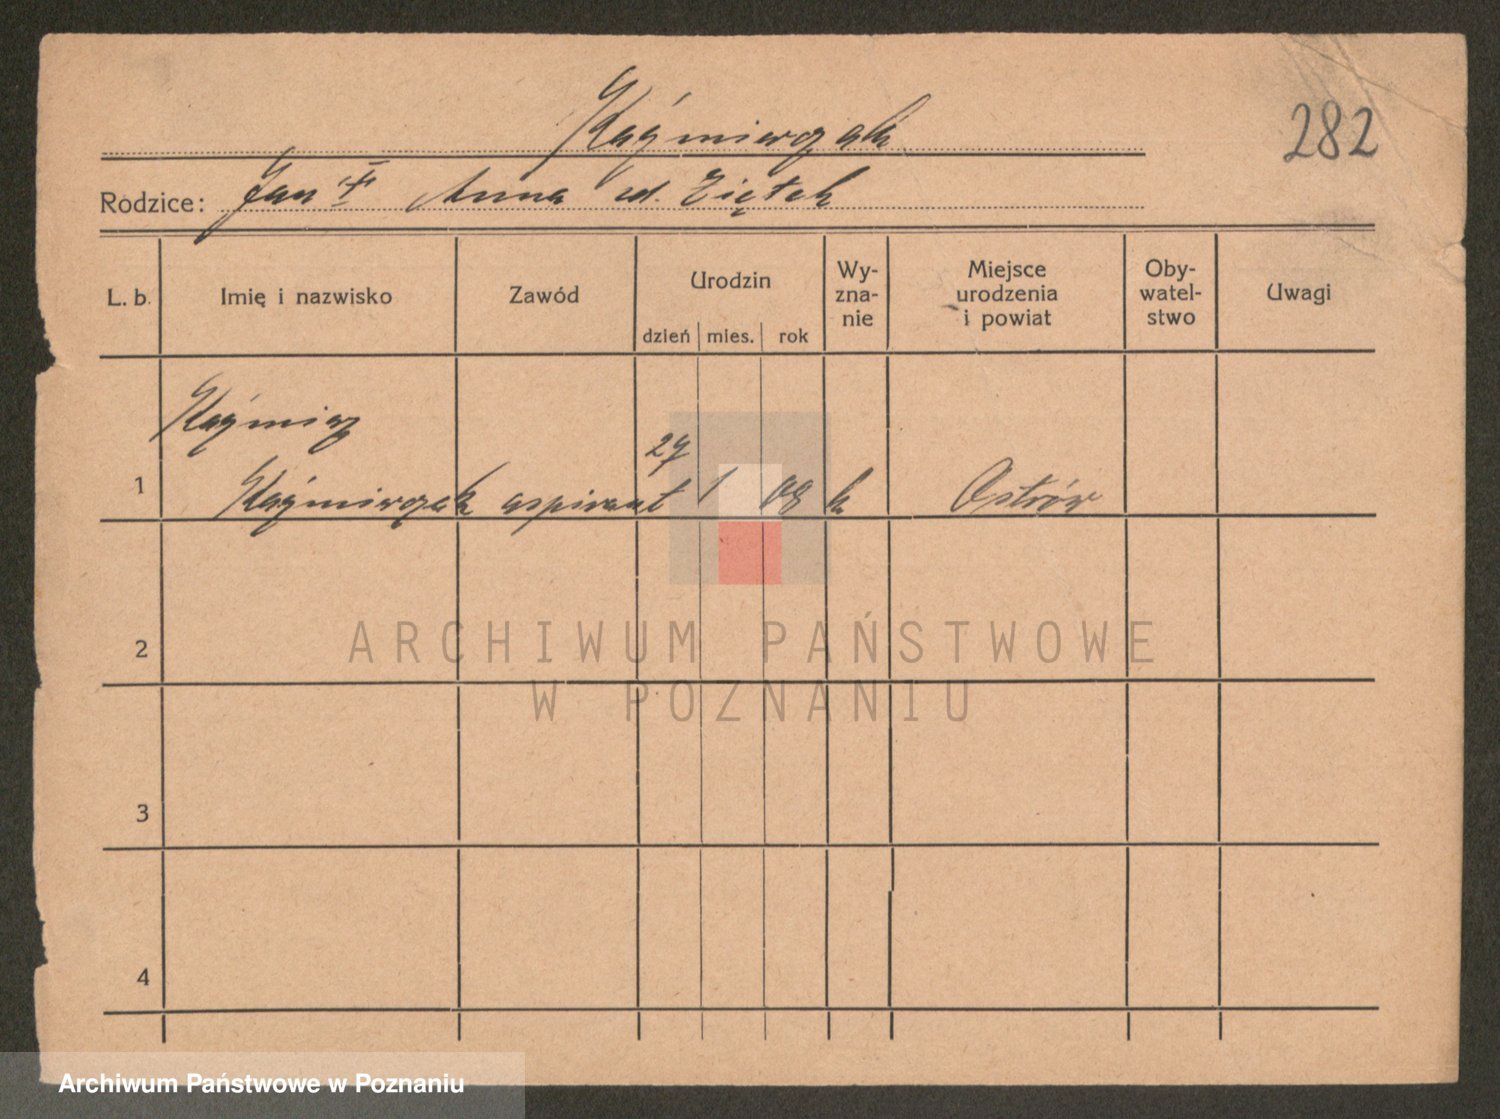 Kaźmierczak
282
Rodzice: Jan I Anna zd. Ziętek
L. b. Imię i nazwisko Zawód Urodzin dzień mies. rok Wy-zna-nie Miejsce urodzenia i powiat Oby-watel-stwo Uwagi
Kaźmierz
27
1 Kaźmierczak aspirant 1 08 k Ostrów
2
ARCHIWUM PAŃSTWOWE
W POZNANIU
3
4
Archiwum Państwowe w Poznaniu